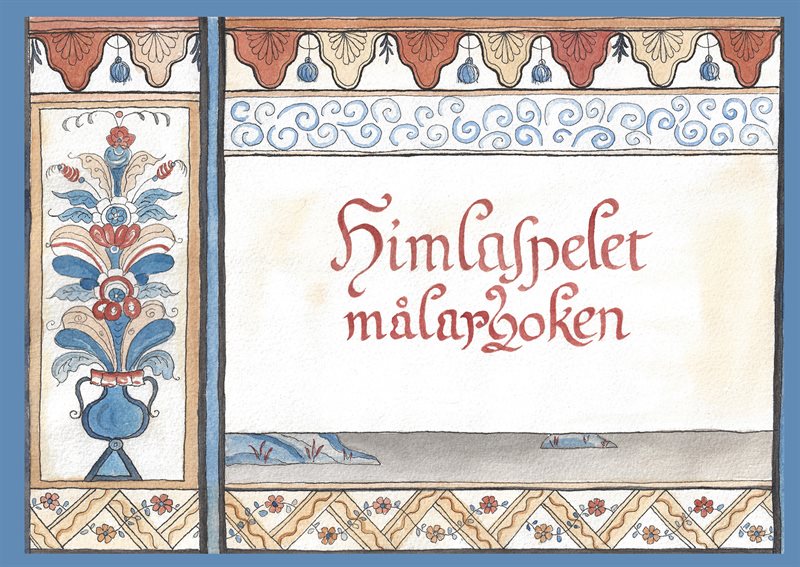 Himlaspelet
målarboken